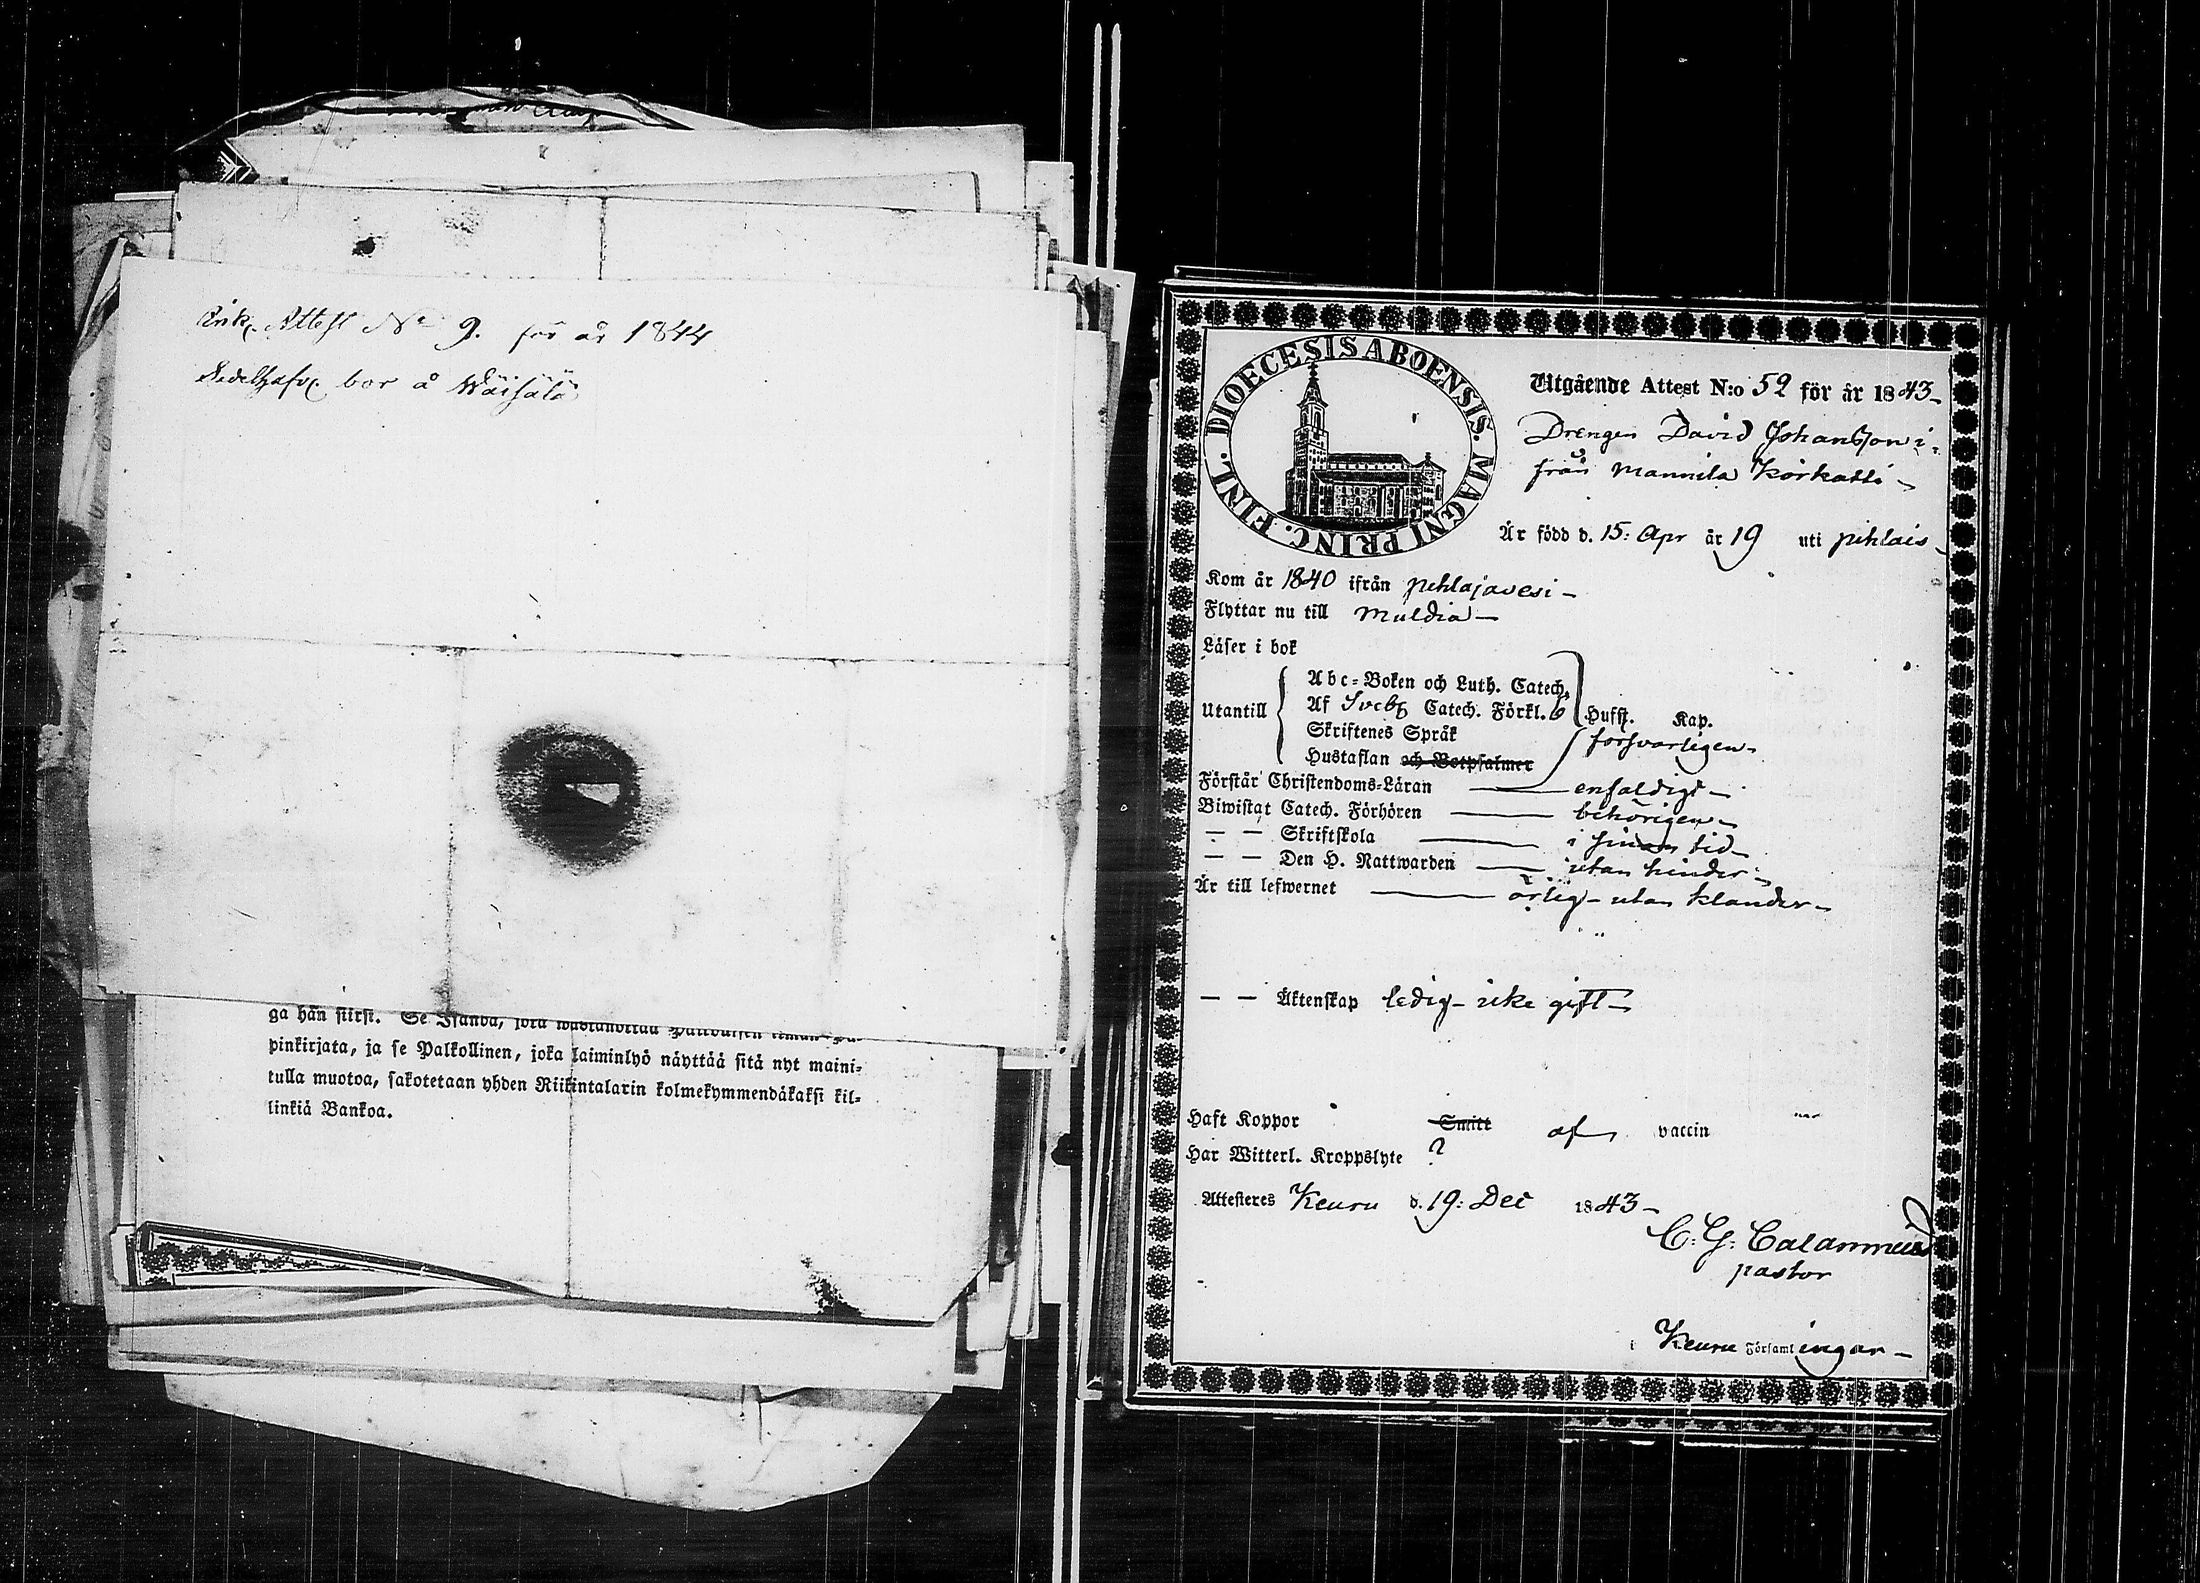 Ank. Attest No 9. för år 1844
Sedelhafv. bor å Wäisälä
ga hän siirsi. Se Isändä, joka wastanottaa
pinkirjata, ja se Palkollinen, joka laiminlyö näyttää sitä nyt maini-
tulla muotoa, sakotetaan yhden Riikintalarin kolmekymmendäkaksi kil-
linkiä Bankoa.
DIOECESIS ABOENSIS. MAGNI PRINC. FINL.
Utgående Attest N:o 52 för år 1843
Drengen David Johansson
från Mannila Korkatti
Är född d. 15: Apr år 19 uti pihlais
Kom år 1840 ifrån pehlajavesi
Flyttar nu till Muldia
Läser i bok
Utantill
Abc-Boken och Luth. Catech.
Af Sveb Catech. Förkl.
Hufst. Kap.
Skriftenes Språk
försvarligen
Hustaflan och Botpsalmer
Förstår Christendoms-Läran enfaldigt
Biwistat Catech. Förhören behörigen
— — Skriftskola i sinom tid
— — Den H. Nattwarden utan hinder
Är till lefwernet ärlig – utan klander
— — Äktenskap ledig – icke gift
Haft Koppor Smitt af vaccin
Har Witterl. Kroppslyte ?
Attesteres Keuru d. 19: Dec 1843
C: G: Calamnius
pastor
i Keuru Församlingar